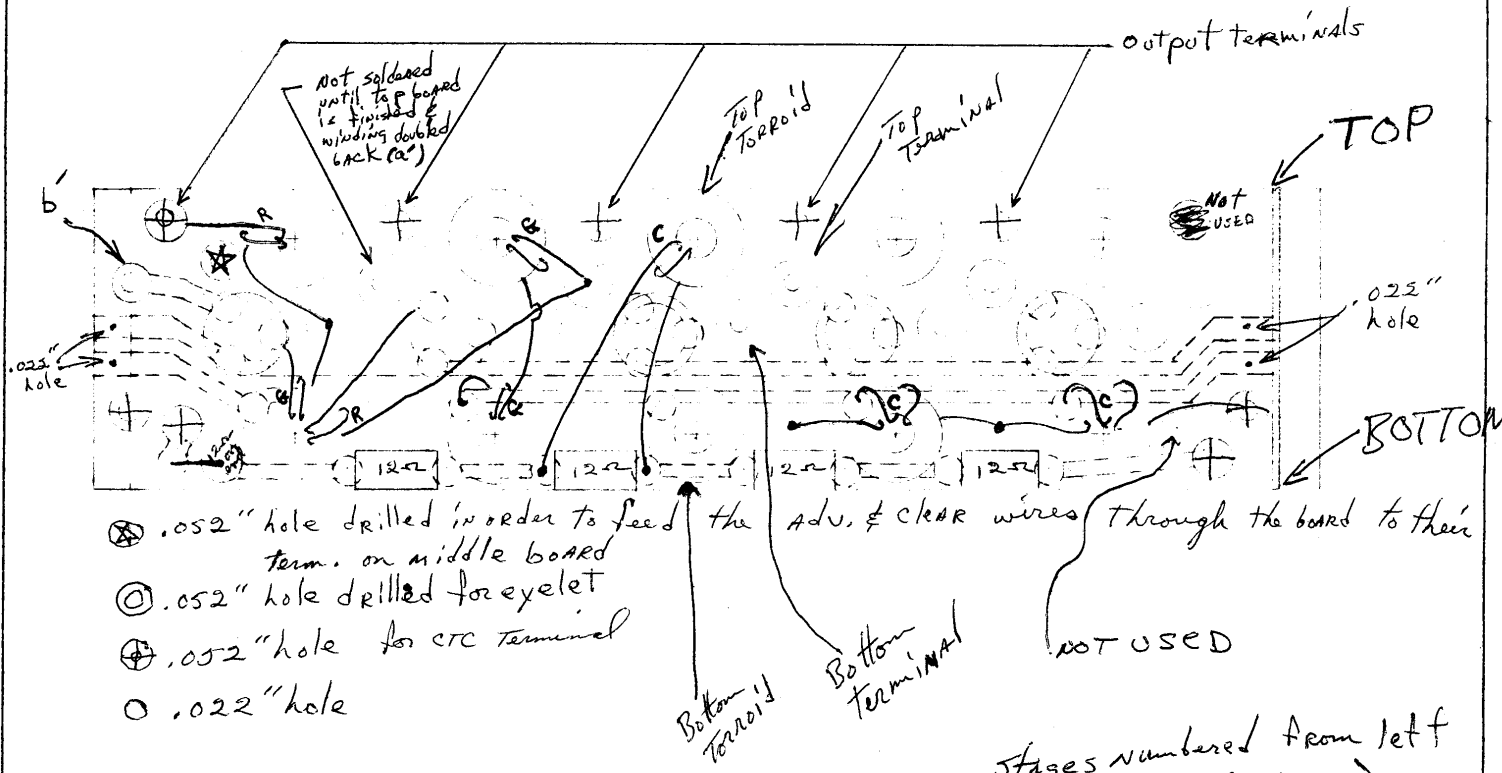 Output terminals
Not soldered
until top board
is finished &
winding doubled
back (a')
TOP
TORROID
TOP
TERMINAL
TOP
b'
R
G
C
Not
USED
.022"
hole
.022"
hole
G
R
G
C
C
BOTTOM
12Ω
12Ω
12Ω
12Ω
12Ω
.052" hole drilled in order to feed the Adv. & clear wires through the board to their
term. on middle board
.052" hole drilled for eyelet
.052" hole for CTC Terminal
.022" hole
Bottom
Torroid
Bottom
terminal
NOT USED
stages numbered from left